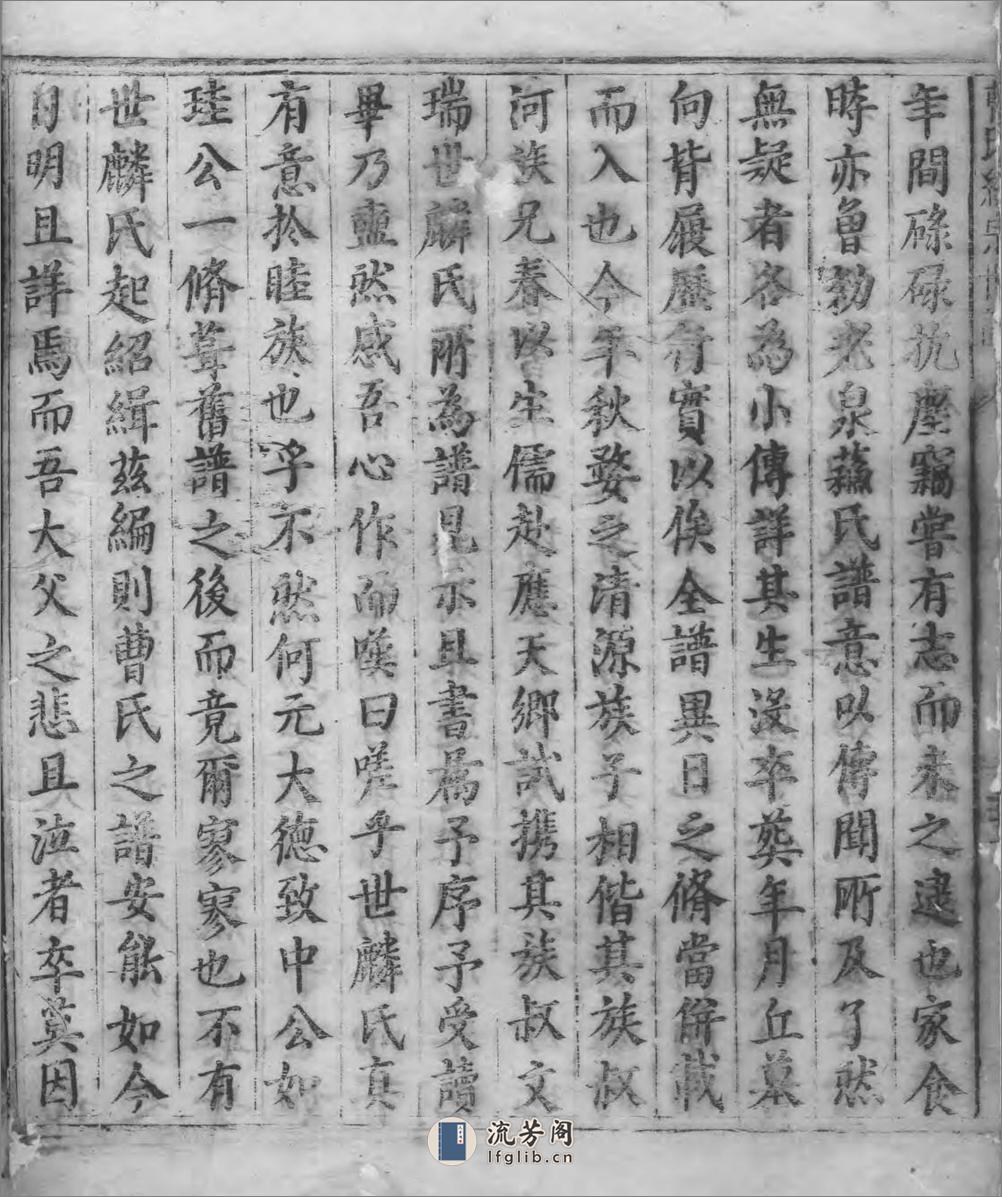 年間碌碌抗塵竊嘗有志而未之逮也家食
時亦曾効老泉蘓氏譜意以傳聞所及了然
無疑者各為小傳詳其生沒卒葬年月丘墓
向背履歷行實以俟全譜異日之脩當併載
而入也今年秋婺之清源族子相偕其族叔
河族兄春以生儒赴應天鄉試携其族叔文
瑞世麟氏所為譜見示且書焉予序予受讀
畢乃盡然感吾心作而嘆曰嗟乎世麟氏真
有意於睦族也乎不然何元大德致中公如
珪公一脩葺舊譜之後而竟爾寥寥也不有
世麟氏起紹緝茲編則曹氏之譜安能如今
日明且詳焉而吾大父之悲且泣者卒莫因
流芳阁
lfglib.cn